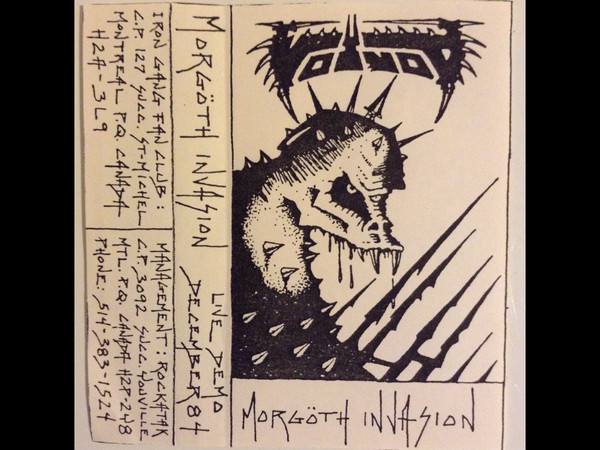 IRON GANG FAN CLUB:
C.P. 127 SUCC. ST-MICHEL
MONTREAL P.Q. CANADA
H2A-3L9
MANAGEMENT: ROCKATAK
C.P. 3092 SUCC. YOUVILLE
MTL. P.Q. CANADA H2P-2V8
PHONE: 514-383-1524
MORGÖTH INVASION
LIVE DEMO
DECEMBER 84
VOIVOD
MORGÖTH INVASION